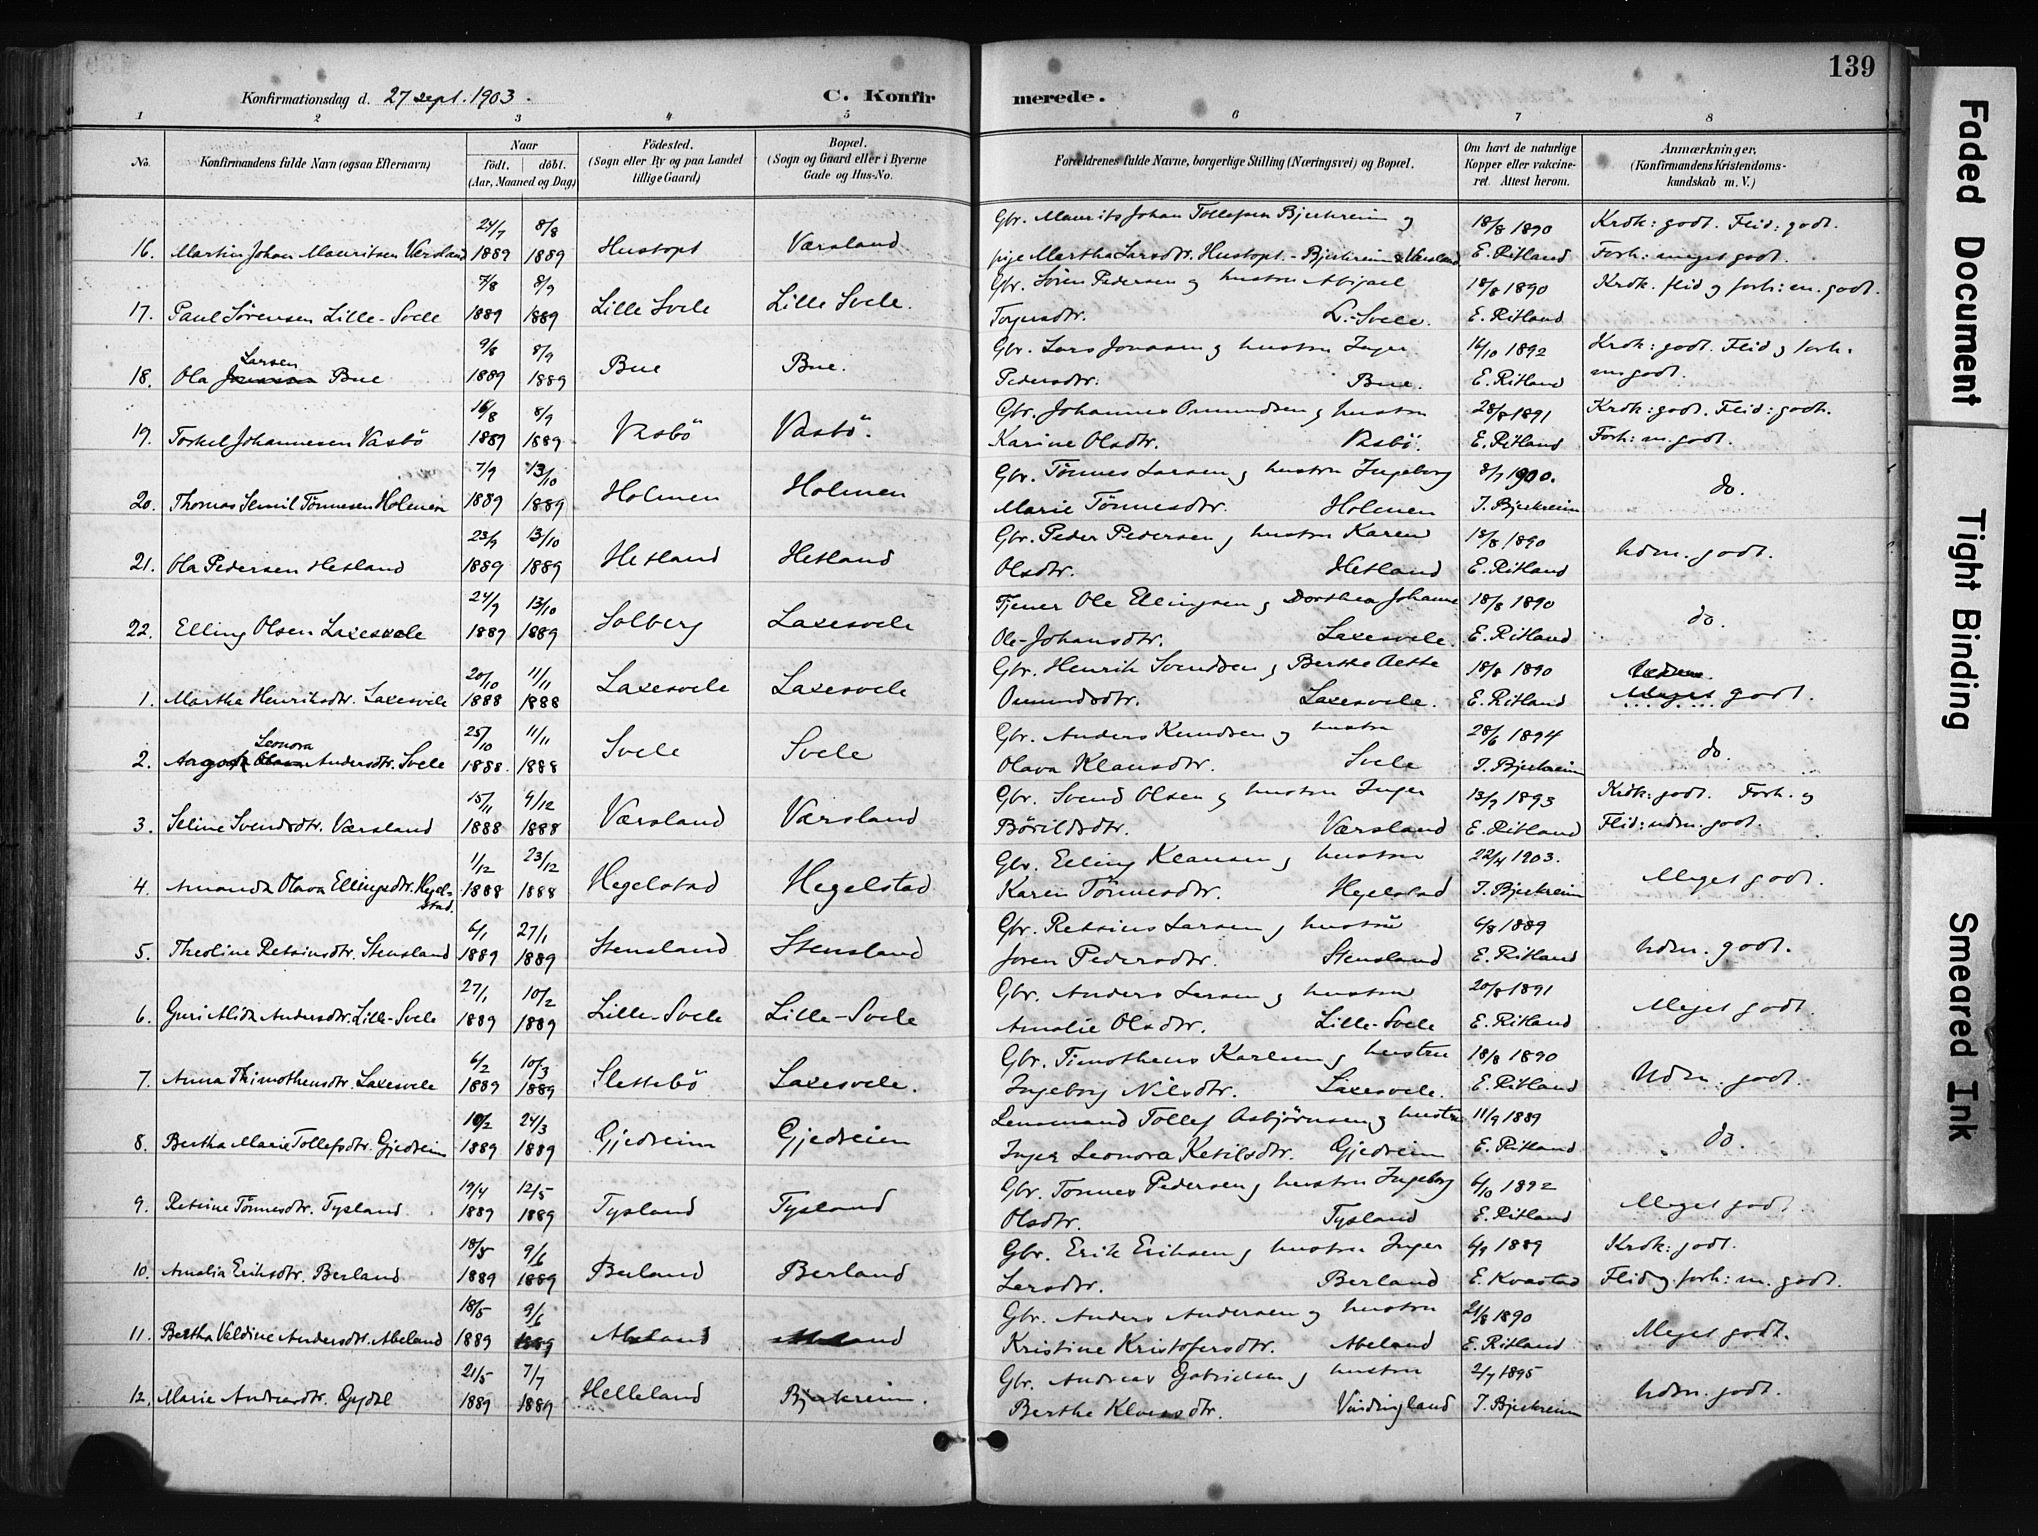 139
Konfirmationsdag d. 27 sept. 1903.
C. Konfirmerede.
1 2 3 4 5 6 7 8
No. Konfirmandens fulde Navn (ogsaa Efternavn) Naar født. døbt. (Aar, Maaned og Dag) Födested. (Sogn eller By og paa Landet tillige Gaard) Bopæl. (Sogn og Gaard eller i Byerne Gade og Hus-No. Forældrenes fulde Navne, borgerlige Stilling (Næringsvei) og Bopæl. Om havt de naturlige Kopper eller vakcineret. Attest herom. Anmærkninger. (Konfirmandens Kristendomskundskab m. V.)
24/7 8/8 Gbr. Maurits Johan Tollefsen Bjerkreim og 18/8 1890 Krdk: godt. Flid: godt.
16. Martin Johan Mauritsen Versland 1889 1889 Hustoft Værsland pige Martha Larsdtr. Hustoft. - Bjerkreim & Versland E. Ritland Forh: meget godt.
7/8 8/9 Gbr. Søren Pedersen og hustru Abigael 18/8 1890 Krdk. flid og forh: m. godt.
17. Paul Sørensen Lille-Svele 1889 1889 Lille Svele Lille Svele. Torgersdtr. L.-Svele. E. Ritland
Larsen 9/8 8/9 Gbr. Lars Jonassen og hustru Inger 16/10 1892 Krdk: godt. Flid og forh.
18. Ola Bue 1889 1889 Bue Bue. Pedersdtr. Bue. E. Ritland m. godt.
16/8 8/9 Gbr. Johannes Omundsen og hustru 28/8 1891 Krdk: godt. Flid: godt.
19. Torkel Johannesen Vasbö 1889 1889 Vasbö Vasbö. Karine Olsdtr. Vasbö. E. Ritland Forh: m. godt.
7/9 13/10 Gbr. Tønnes Larsen og hustru Ingeborg 8/7 1900.
20. Thomas Semil Tønnesen Holmen 1889 1889 Holmen Holmen Marie Tönnesdtr. Holmen T. Bjerkreim do.
23/9 13/10 Gbr. Peder Pedersen og hustru Karen 18/8 1890
21. Ola Pedersen Hetland 1889 1889 Hetland Hetland Olsdtr. Hetland E. Ritland Udm. godt.
24/9 13/10 Tjener Ole Ellingsen og Dorthea Johanne 18/8 1890
22. Elling Olsen Laxesvele 1889 1889 Solberg Laxesvele Ole-Johansdtr. Laxesvele. E. Ritland do.
20/10 11/11 Gbr. Henrik Svendsen og Berthe Aette 18/8 1890
1. Martha Henriksdtr. Laxesvele 1888 1888 Laxesvele Laxesvele Omundsdtr. Laxesvele. E. Ritland Meget godt.
Leonora 25/10 11/11 Gbr. Anders Knudsen og hustru 28/6 1894
2. Andersdtr. Svele 1888. 1888 Svele Svele Olava Klausdtr. Svele T. Bjerkreim do.
15/11 9/12 Gbr. Svend Olsen og hustru Inger 13/7 1893 Krdk: godt. Forh. og
3. Seline Svendsdtr. Værsland 1888 1888 Værsland Værsland Börildsdtr. Værsland E. Ritland Flid: udm. godt.
1/12 23/12 Gbr. Elling Klausen og hustru 22/4 1903.
4. Amanda Olava Ellingsdtr. Hegelstad. 1888 1888 Hegelstad Hegelstad Karen Tönnesdtr. Hegelstad T. Bjerkreim Meget godt.
6/1 27/1 Gbr. Retsius Larsen og hustru 6/8 1889
5. Theoline Retsiusdtr. Stensland 1889 1889 Stensland Stensland Joren Pedersdtr. Stensland E. Ritland Udm. godt.
27/1 10/2 Gbr. Anders Larsen og hustru 20/8 1891
6. Guri Alida Andersdtr. Lille-Svele 1889 1889 Lille-Svele Lille-Svele Amalie Olsdtr. Lille-Svele E. Ritland Meget godt.
6/2 10/3 Gbr. Timotheus Karlsen og hustru 18/8 1890
7. Anna Thimotheusdtr. Laxesvele 1889 1889 Slettebö Laxesvele. Ingeborg Nilsdtr. Laxesvele. E. Ritland Udm. godt.
10/2 24/3 Lensmand Tollef Asbjørnsen og hustru 11/9 1889
8. Bertha Marie Tollefsdtr. Gjedreim 1889 1889 Gjedreim Gjedreim Inger Leonora Ketilsdtr. Gjedreim E. Ritland do.
19/4 12/5 Gbr. Tönnes Pedersen og hustru Ingeborg 6/10 1892
9. Retsine Tönnesdtr. Tysland. 1889 1889 Tysland Tysland Olsdtr. Tysland E. Ritland Meget godt.
18/5 9/6 Gbr. Erik Eriksen og hustru Inger 6/9 1889 Krdk: godt.
10. Amalia Eriksdtr. Berland 1889 1889 Berland Berland Larsdtr. Berland E. Kvastad Flid og forh: m. godt.
18/5 9/6 Gbr. Anders Andersen og hustru 21/8 1890
11. Bertha Valdine Andersdtr. Abeland 1889 1889 Abeland Abeland Kristine Kristofersdtr. Abeland E. Ritland Meget godt.
21/5 7/7 Gbr. Andreas Gabrielsen og hustru 2/7 1895
12. Marie Andreasdtr. Gydal 1889 1889 Helleland Bjerkreim. Berthe Klausdtr. Vindingland T. Bjerkreim Udm. godt.
Faded Document
Tight Binding
Smeared Ink